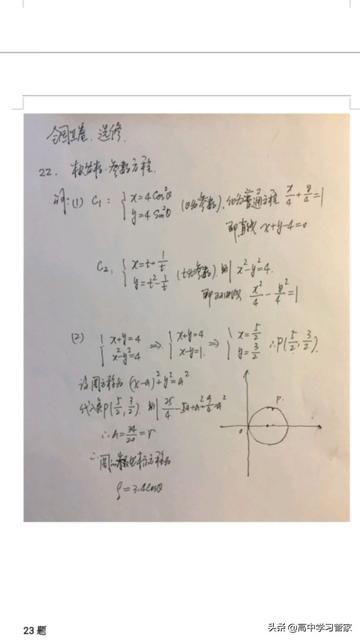 全国II卷. 选修.
22. 极坐标. 参数方程.
解:(1) C₁: { x=4Cos²θ y=4Sin²θ (θ为参数), 化为普通方程 x/4+y/4=1
即直线 x+y-4=0
C₂, { x=t+1/t y=t²-1/t (t为参数) 则 x²-y²=4.
即双曲线 x²/4-y²/4=1
(2) { x+y=4 x²-y²=4 ⇒ { x+y=4 x-y=1. ⇒ { x=5/2 y=3/2 ∴P(5/2, 3/2).
设圆方程为 (x-a)²+y²=a²
代入点P(5/2, 3/2) 则 25/4-5a+a²+9/4=a²
P.
∴a=34/20=r
0
∴圆的极坐标方程为
ρ=3.4cosθ
23 题
头条 @高中学习管家